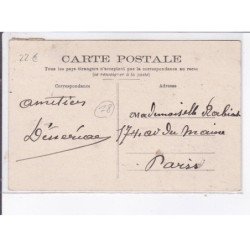 22€
CARTE POSTALE
Tous les pays étrangers n'acceptent pas la correspondance au recto
(se renseigner à la poste)
Correspondance
Adresse
amitiés
28
Mademoiselle
174 av du Maine
Paris